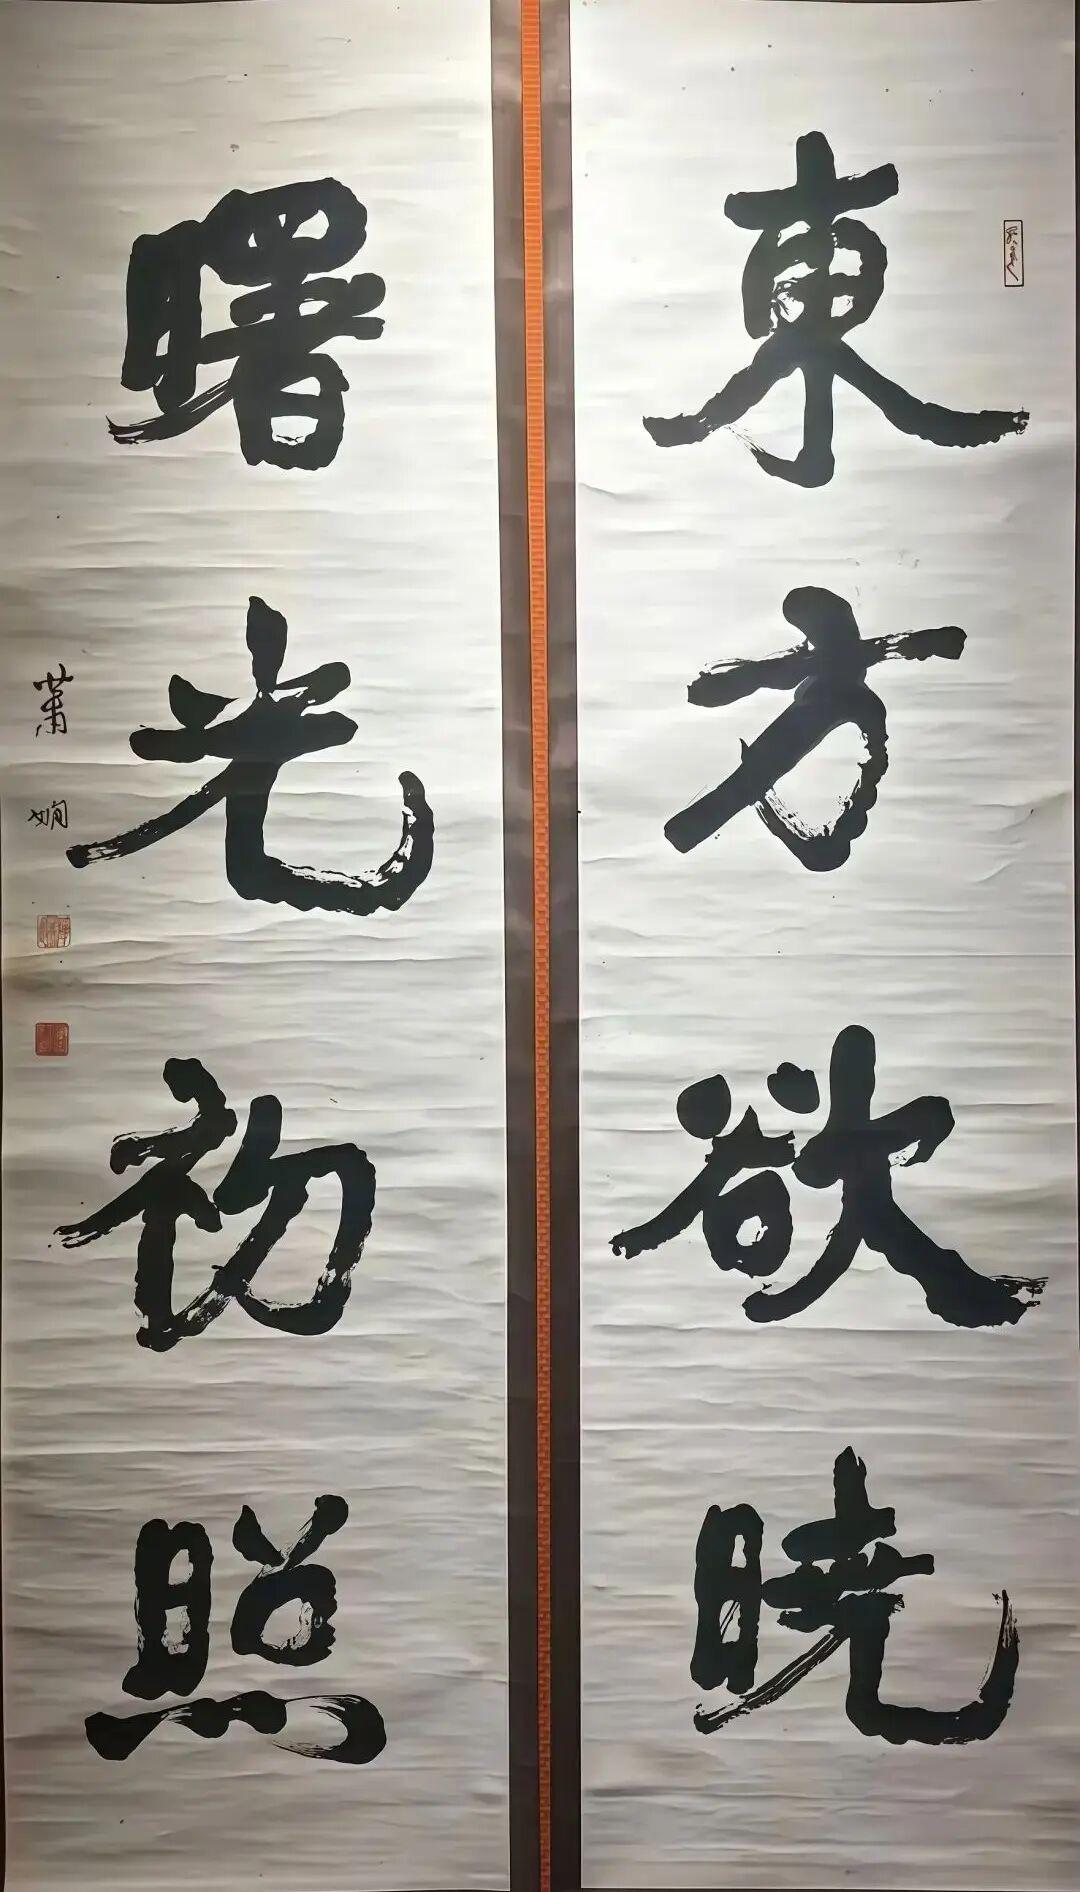 東方欲曉
曙光初照
蕭嫻